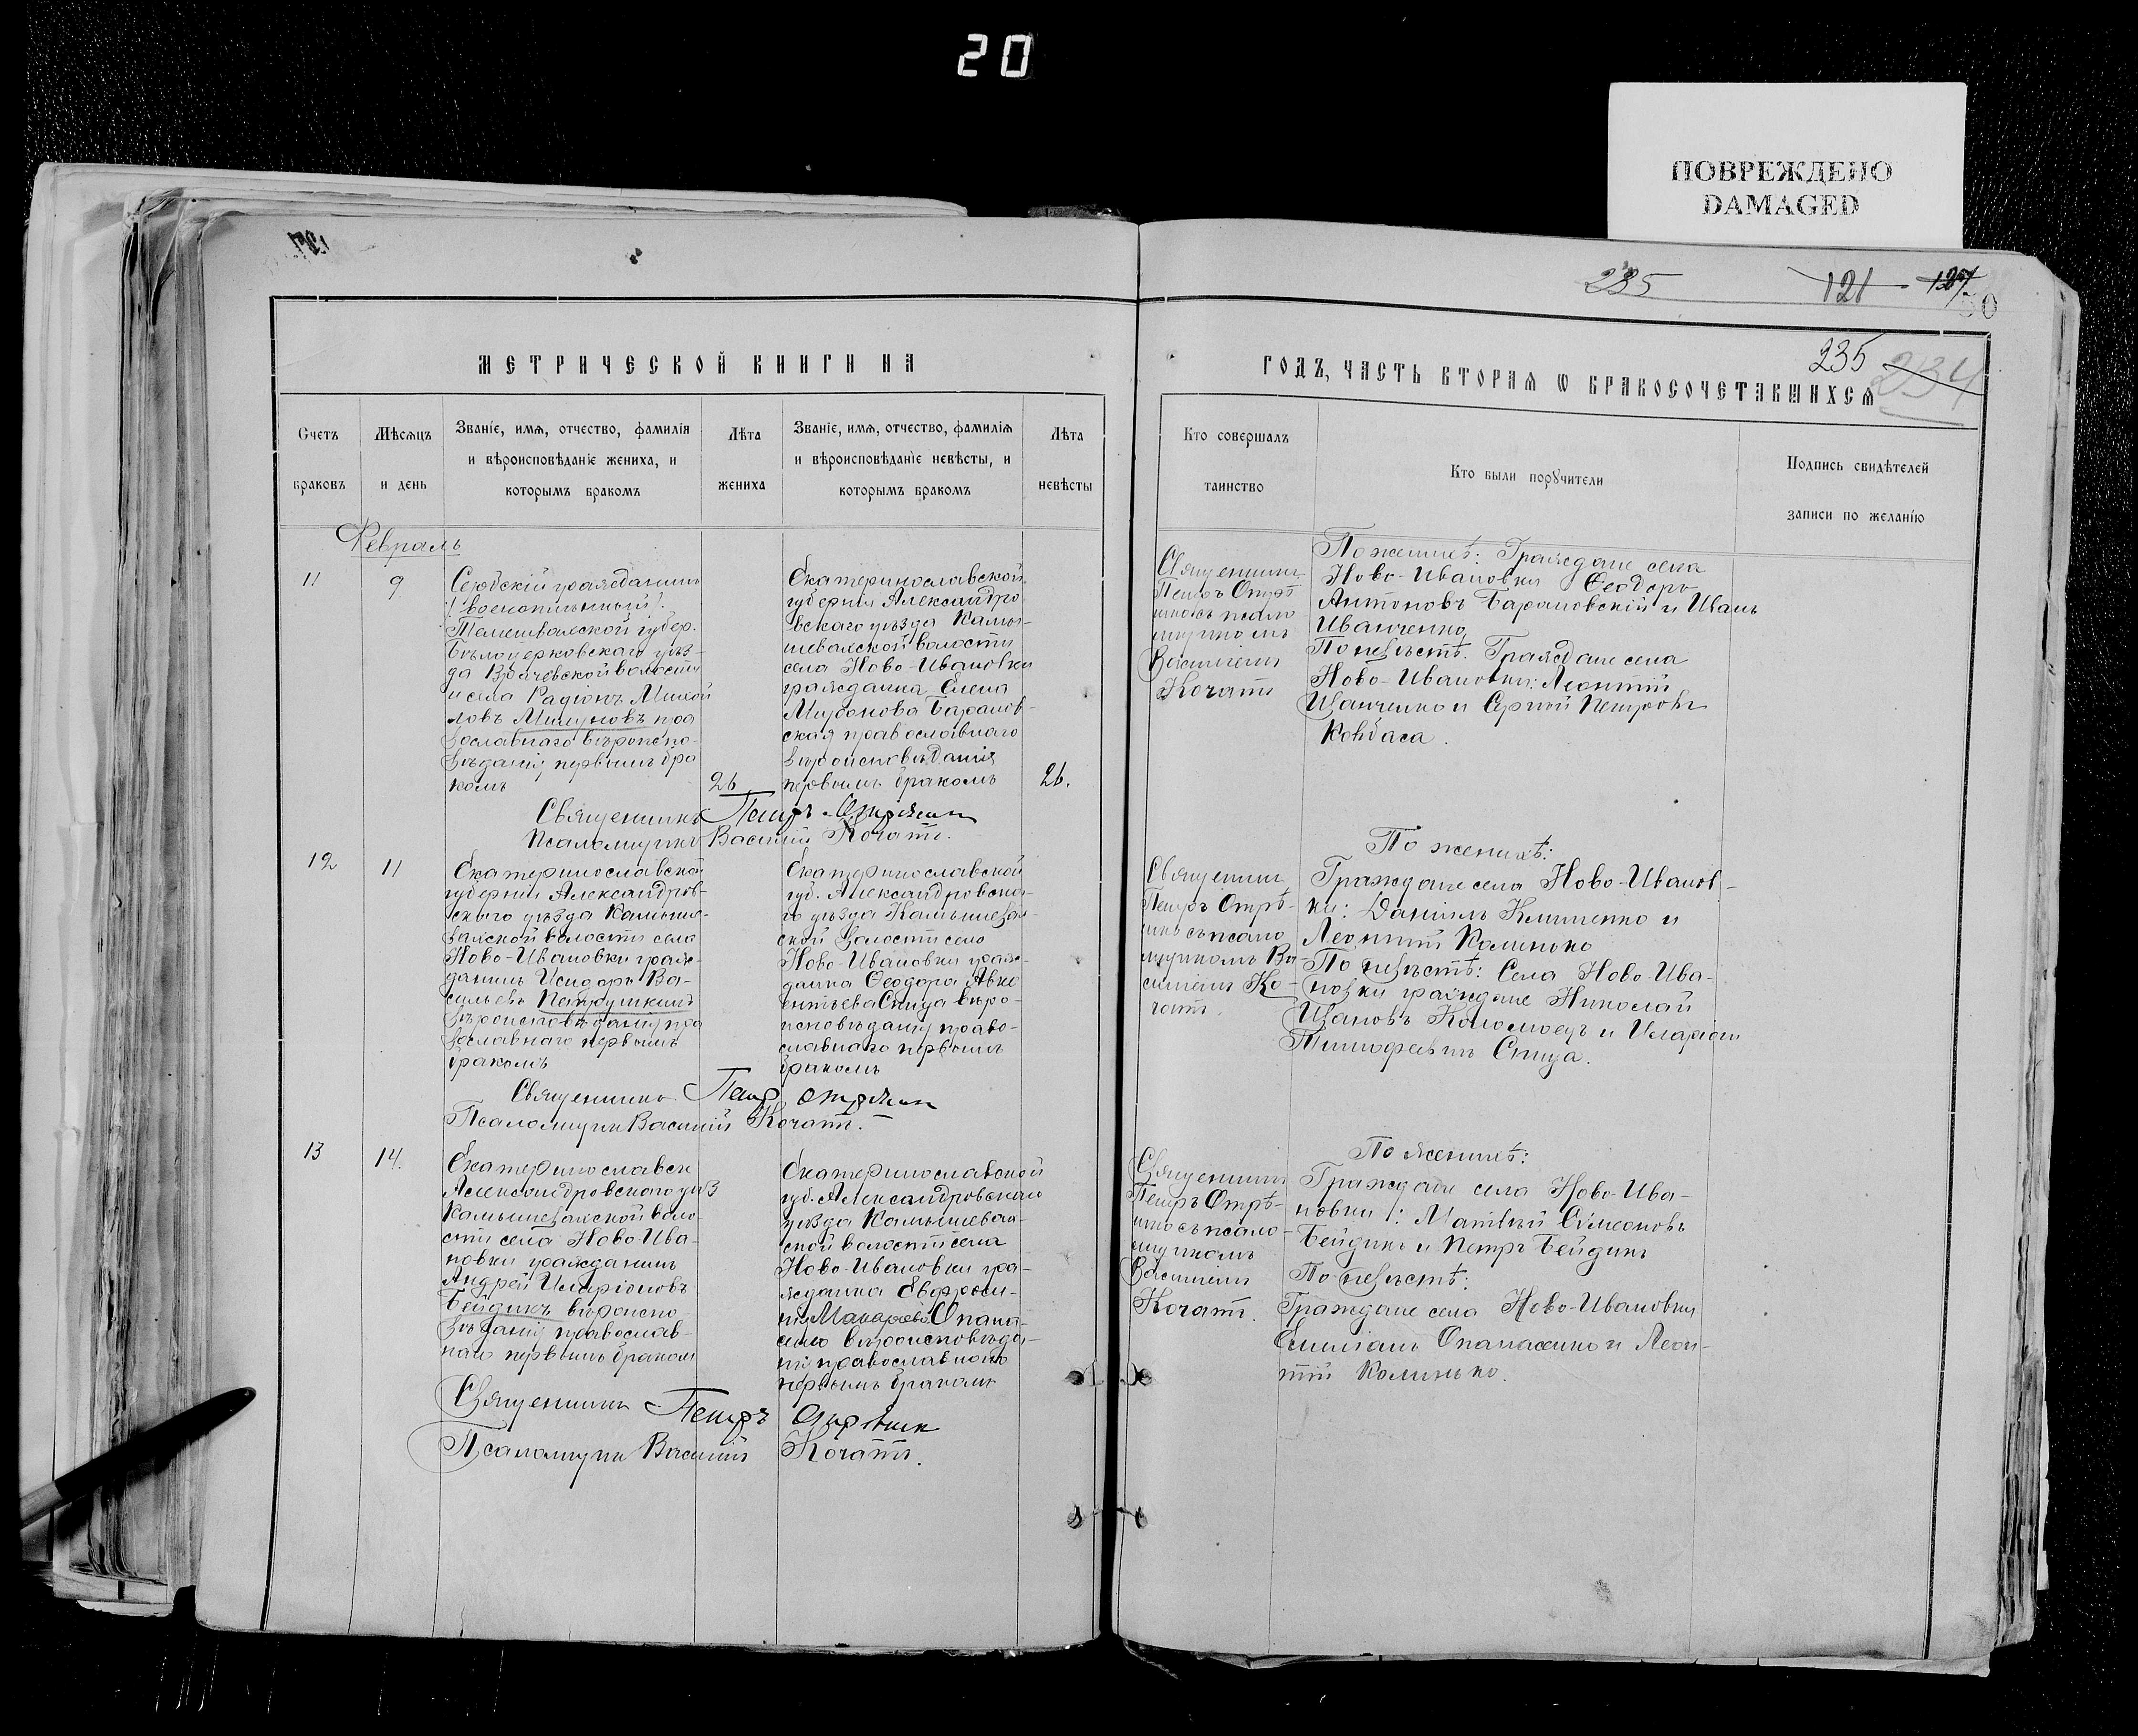 20
ПОВРЕЖДЕНО
DAMAGED
235
121
127
50
235
234
МЕТРИЧЕСКОЙ КНИГИ НА
ГОДЪ, ЧАСТЬ ВТОРАЯ Ѡ БРАКОСОЧЕТАВШИХСЯ
Счетъ
браковъ
Мѣсяцъ
и день
Званіе, имя, отчество, фамилія
и вѣроисповѣданіе жениха, и
которымъ бракомъ
Лѣта
жениха
Званіе, имя, отчество, фамилія
и вѣроисповѣданіе невѣсты, и
которымъ бракомъ
Лѣта
невѣсты
Кто совершалъ
таинство
Кто были порꙋчители
Подпись свидѣтелей
записи по желанію
Февраль
11
9
Сербскій гражданинъ
(военоплѣнный).
Темешварской губер.
Бѣлоцерковскаго уѣз-
да волости
и села Радіонъ Михай
ловъ Милуновъ пра
вославнаго вѣроиспо-
вѣданія первымъ бра
комъ
26
Екатеринославской
губерніи Александро
вскаго уѣзда Камы-
шевахской волости
села Ново-Ивановки
гражданка Елена
Баранов-
ская православнаго
вѣроисповѣданія
первымъ бракомъ
26.
Священникъ
Петръ Отрѣ
шко съ псало
мщикомъ
Василіемъ
Кочатъ
По женихѣ: Граждане села
Ново-Ивановки Ѳеодоръ
Антоновъ Барановскій и Иванъ
Иванченко
По невѣстѣ. Граждане села
Ново-Ивановки: Леонтій
Иванченко и Сергѣй Петровъ
Ковбаса.
Священникъ Петръ
Псаломщикъ Василій Кочатъ.
12
11
Екатеринославской
губерніи Александров-
скаго уѣзда Камыше-
вахской волости села
Ново-Ивановки граж-
данинъ Исидоръ Ва-
сильевъ Петрушкинъ
вѣроисповѣданія пра
вославнаго первымъ
бракомъ
Екатеринославской
губ. Александровска-
го уѣзда Камышевах-
ской волости села
Ново-Ивановки граж-
данка Ѳеодора Авкс
ентьева Спица вѣро-
исповѣданія право-
славнаго первымъ
бракомъ
Священник
Петръ Отрѣ-
шко съ псало
мщикомъ Ва-
силіемъ Ко-
чатъ.
По женихѣ:
Граждане села Ново-Иванов-
ки: Даніилъ Клименко и
Леонтій Калинько
По невѣстѣ: Села Ново-Ива-
новки граждане Николай
Ивановъ Коломоецъ и Иларіон
Тимофеевъ Спица.
Священникъ Петръ
Псаломщикъ Василій Кочатъ.
13
14.
Екатеринославск
Александровского уѣз
Камышевахской воло-
сти села Ново-Ива-
новки гражданинъ
Андрей Иларіоновъ
Бейдикъ вѣроиспо
вѣданія православ-
наго первымъ бракомъ
Екатеринославской
губ. Александровскаго
уѣзда Камышевах-
ской волости села
Ново-Ивановки гра-
жданка Евфроси-
нія Макарьева Опана-
сенко вѣроисповѣда-
нія православнаго
первымъ бракомъ
Священник
Петръ Отрѣ-
шко съ псало-
мщикомъ
Василіемъ
Кочатъ.
По женихѣ:
Граждане села Ново-Ива-
новки: Матвѣй Симеоновъ
Бейдикъ и Петръ Бейдикъ
По невѣстѣ:
Граждане села Ново-Ивановки
Емиліанъ Опанасенко и Леон-
тій Калинько.
Священникъ Петръ
Псаломщикъ Василій Кочатъ.